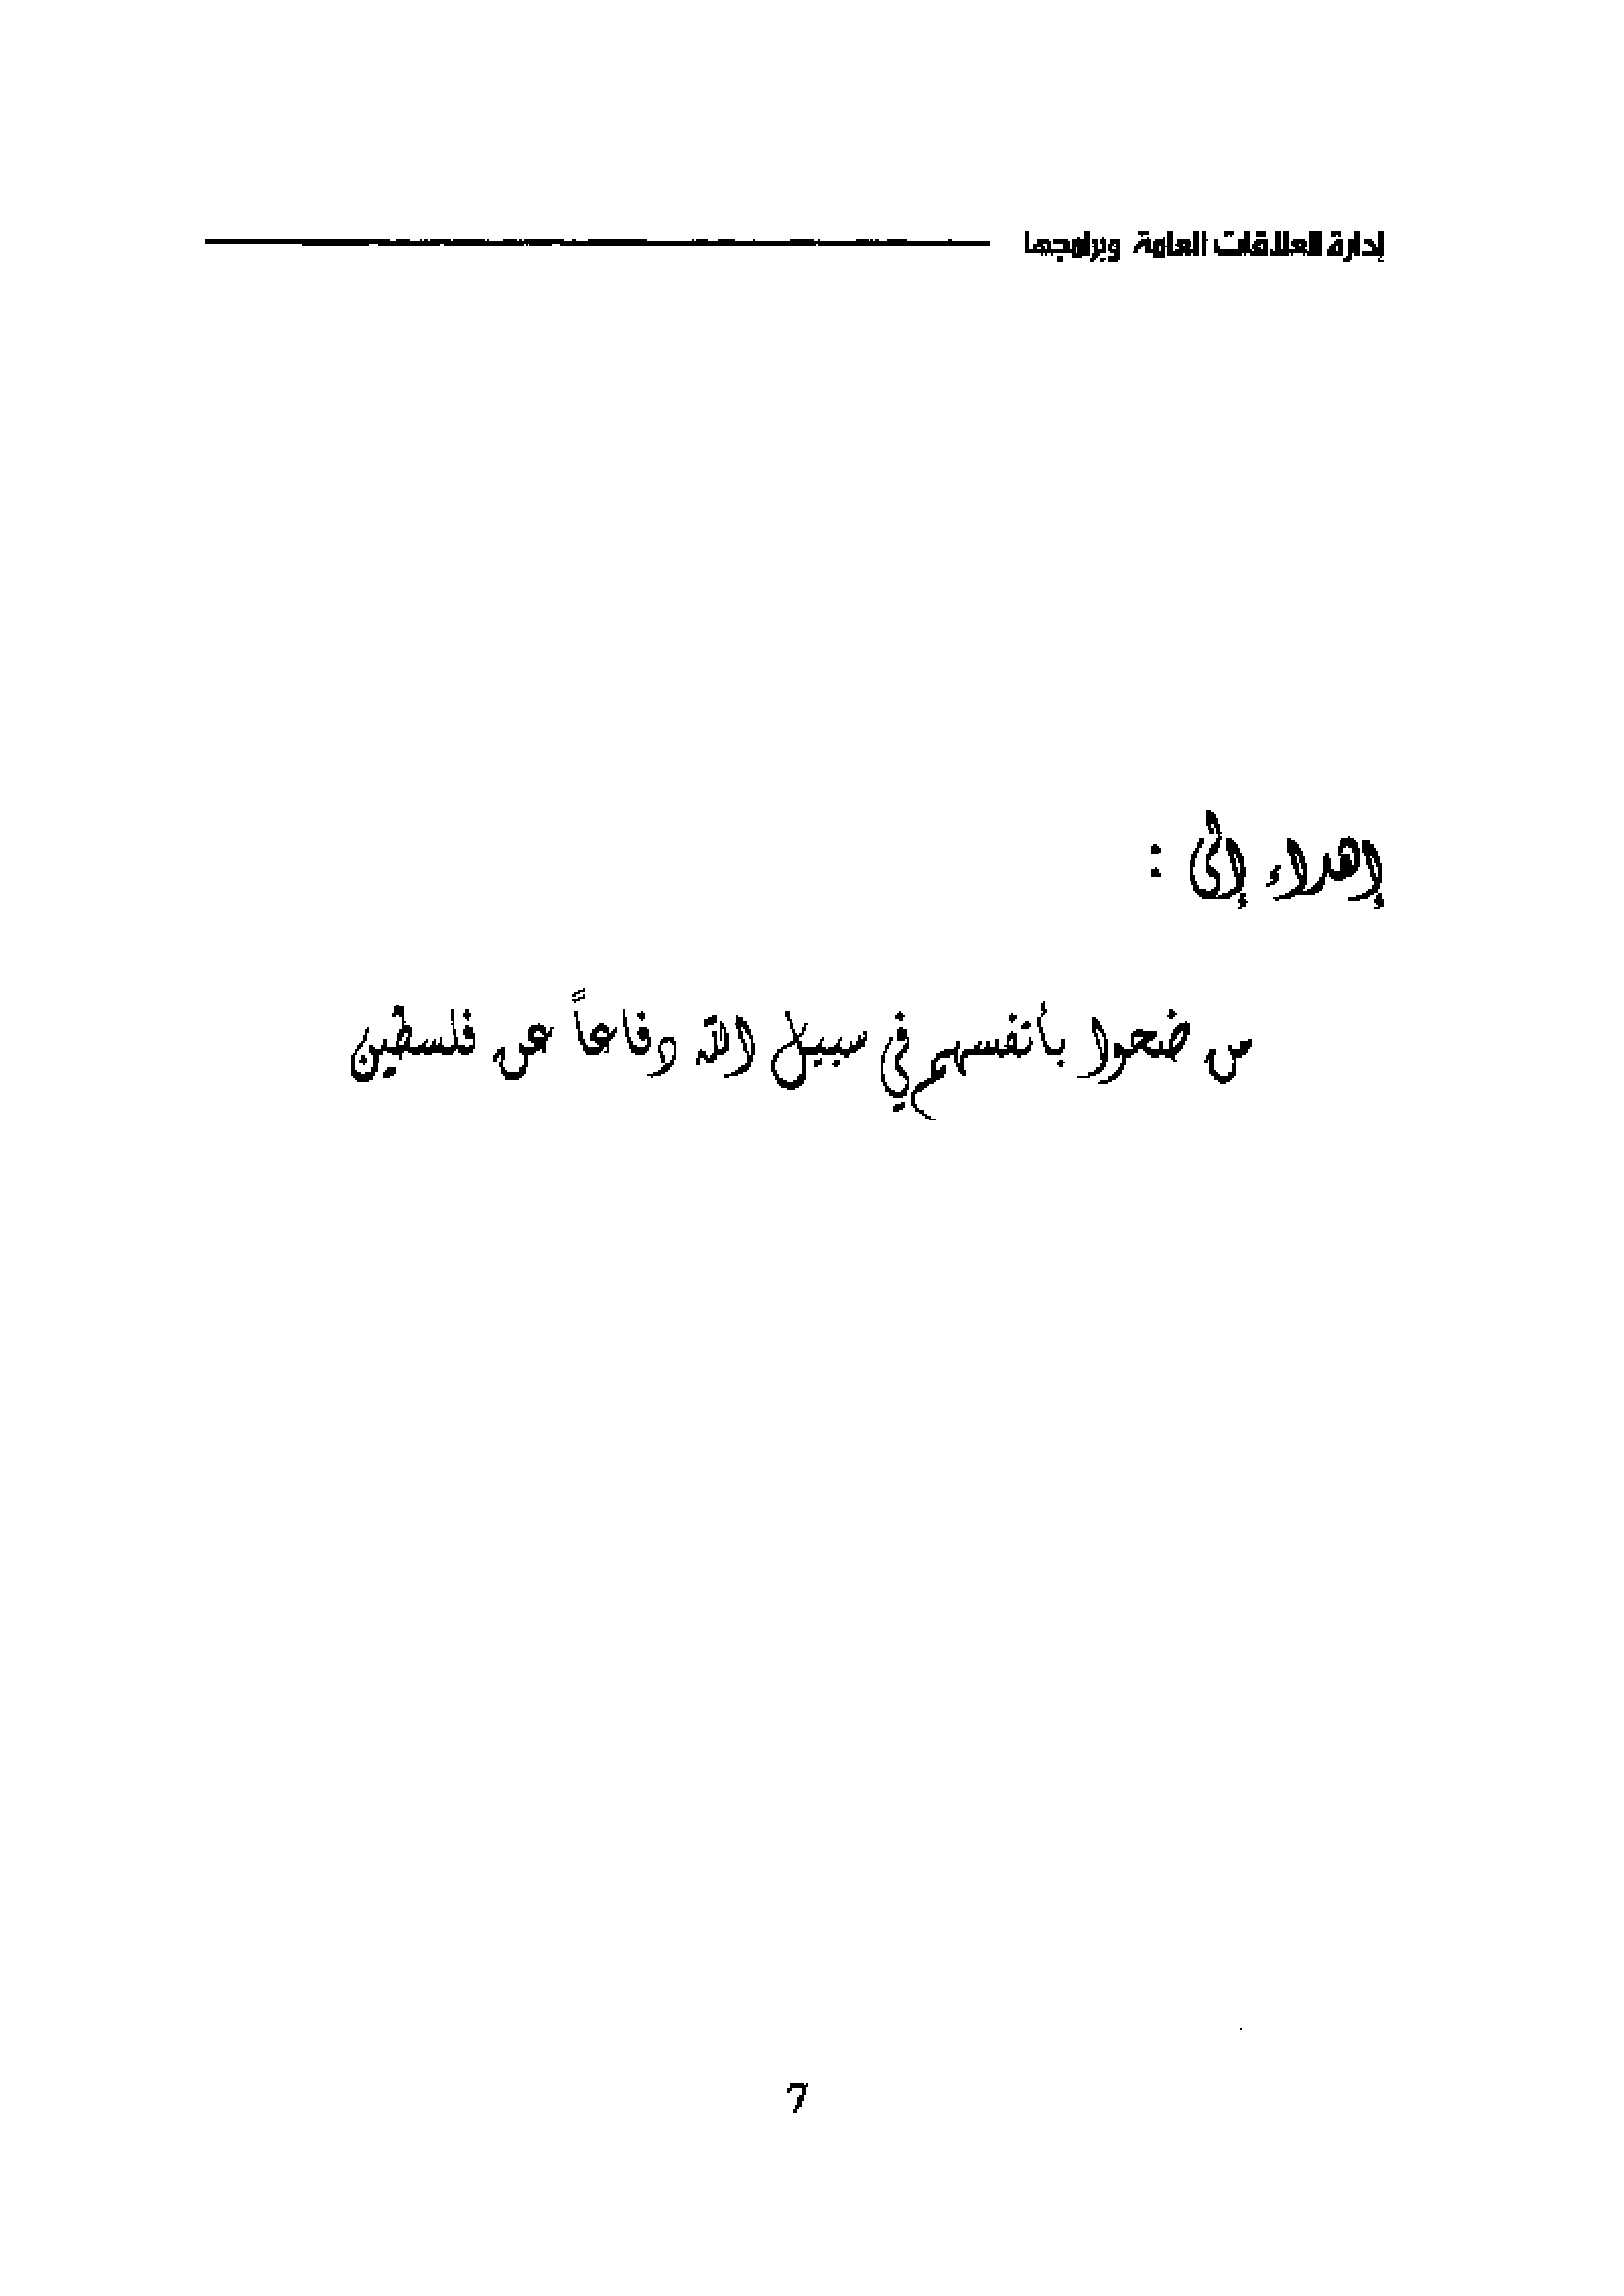 إدارة العلاقات العامة وبرامجها
إهداء إلى :
من ضحوا بأنفسهم في سبيل الله دفاعاً عن فلسطين
7